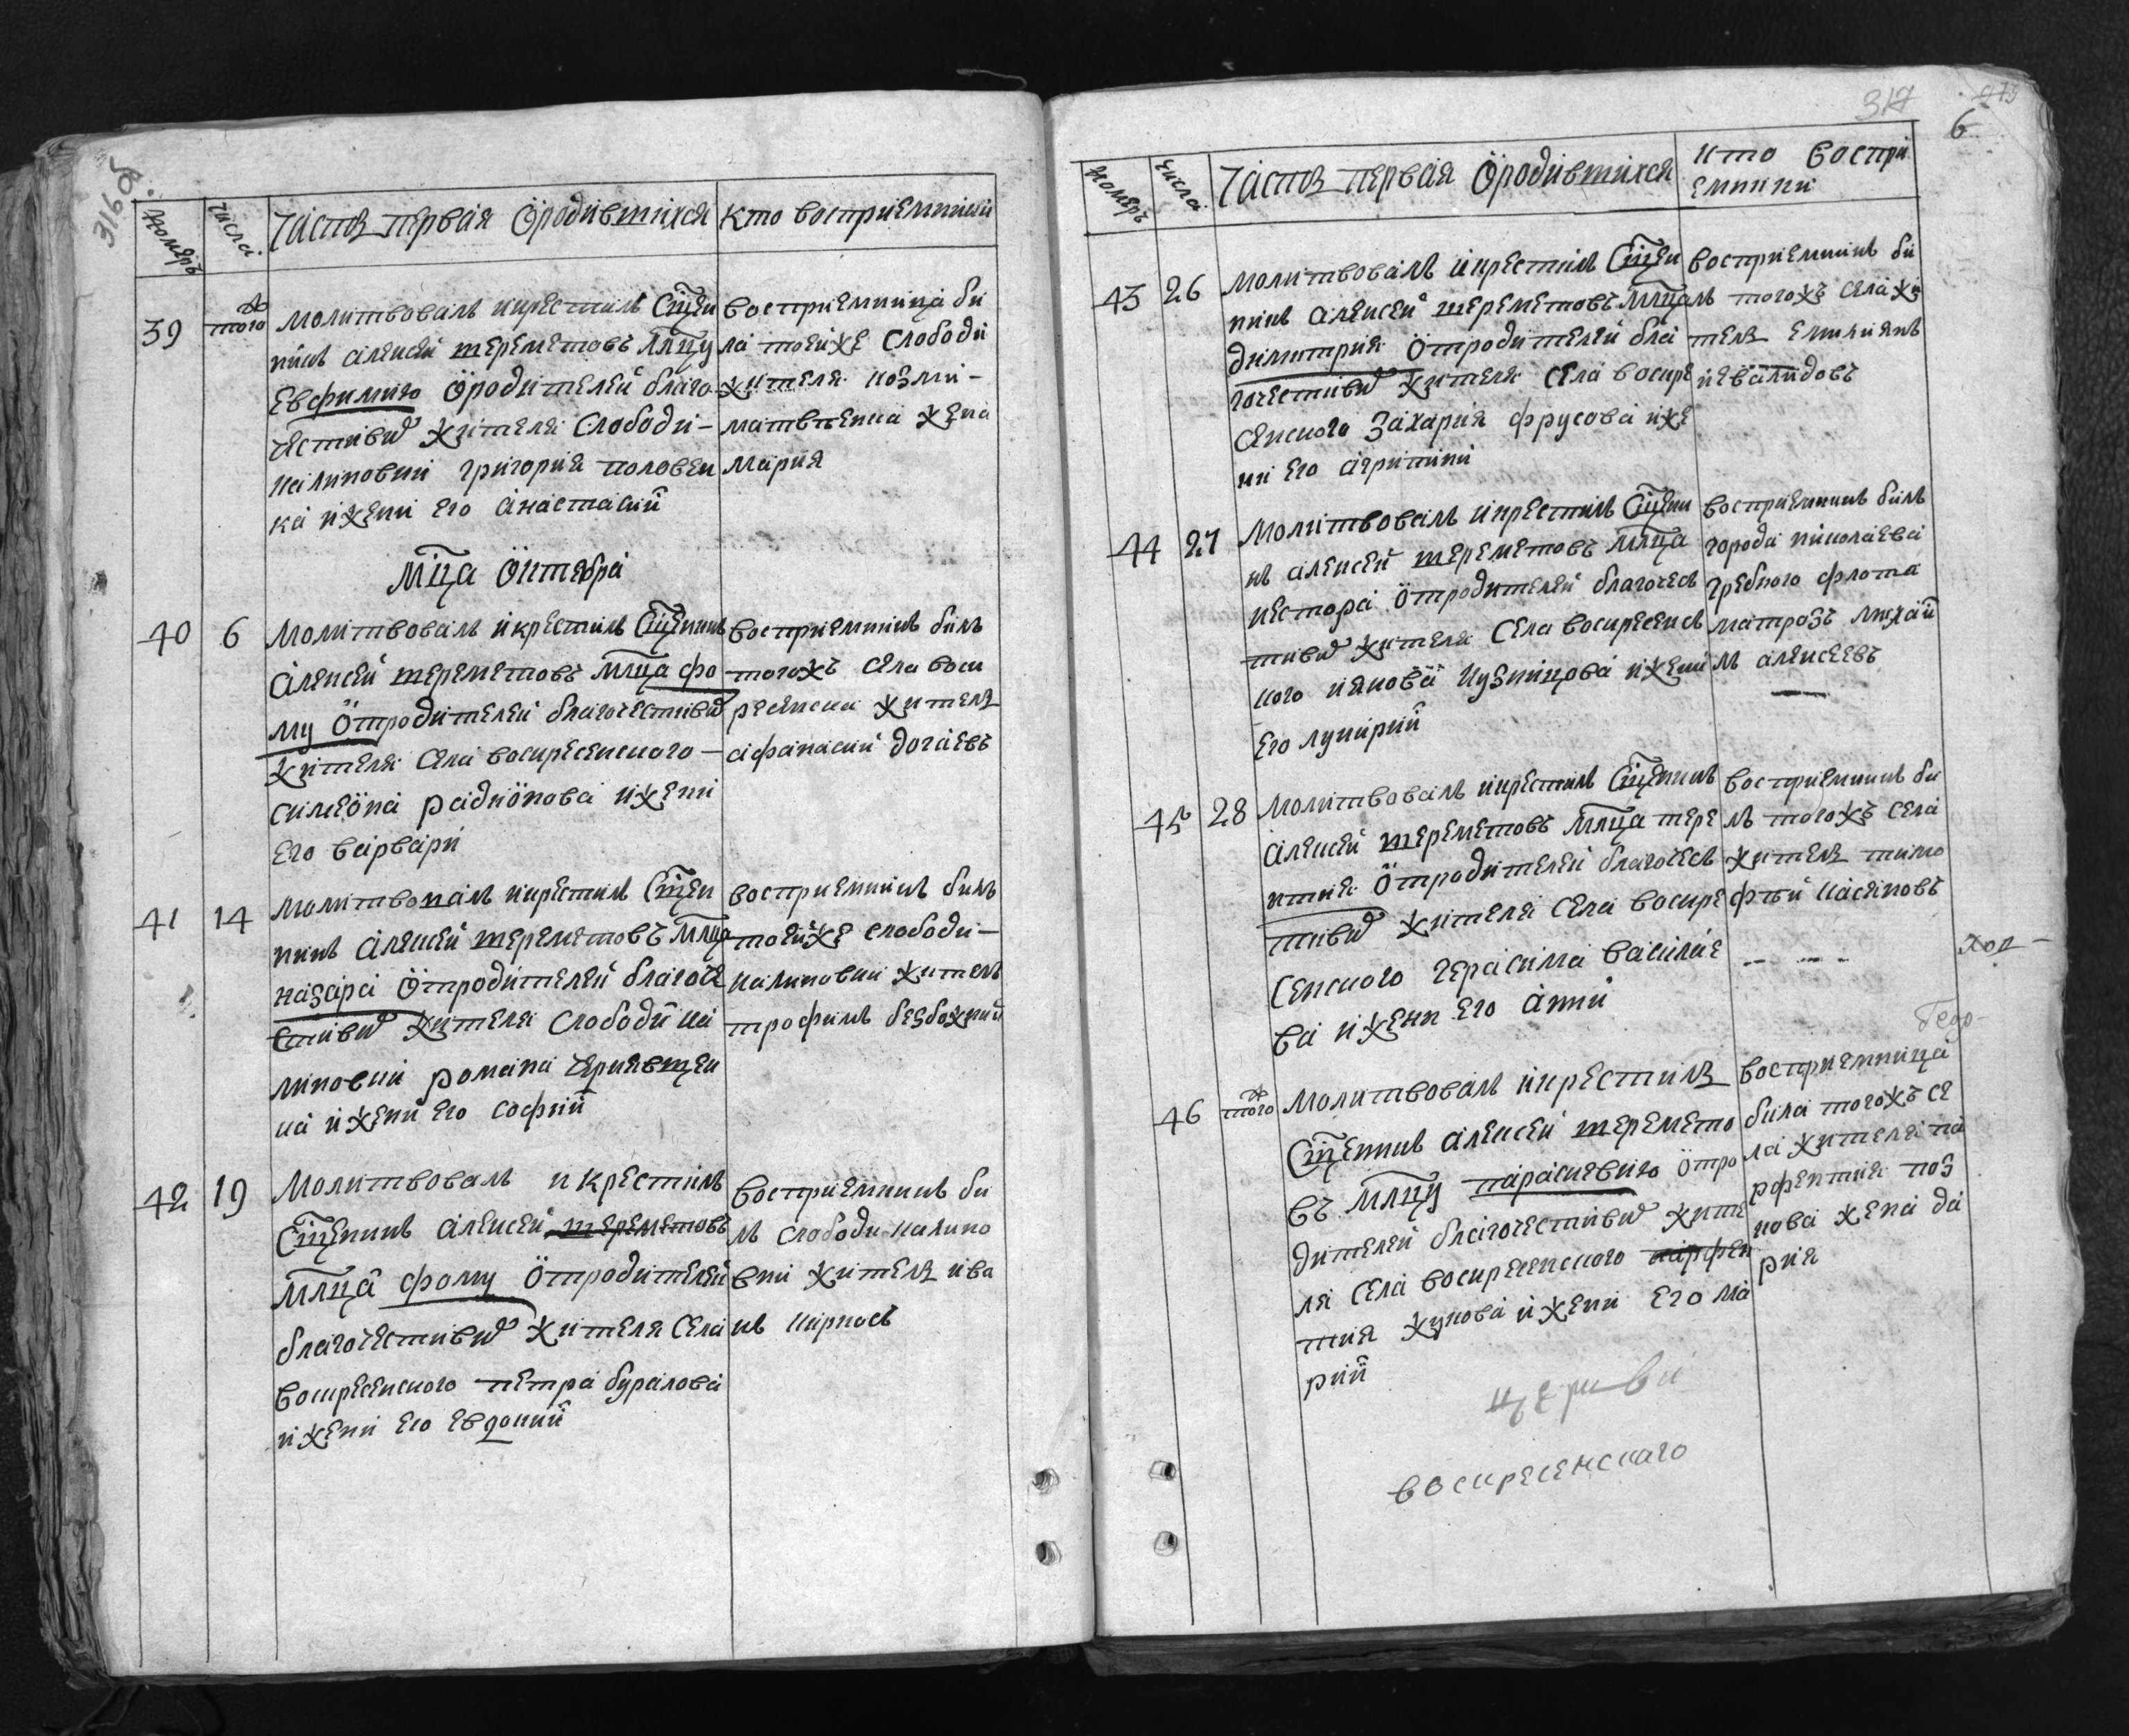 316 об.
Номеръ Числа Часть первая ѿ родившихся Кто восприемники
39 тогож Молитвовалъ и крестилъ Сщен
никъ алексей шереметовъ млцу
Евфимию ѿ родителей благо
честивых жителя слободи
калиновки григория половен
ка и жени его анастасии
восприемница би
ла тоейже слободи
жителя козми
матвеенка жена
мария
Мца Октебра
40 6 Молитвовалъ и крестилъ Сщенникъ
алексей шереметовъ млца фо
му ѿ родителей благочестивых
жителя села воскресенского
симеона радионова и жени
его варвари
восприемникъ билъ
тогожъ села воск
ресенска житель
афанасий догаевъ
41 14 Молитвовалъ и крестилъ Сщен
никъ алексей шереметовъ млца
назара ѿ родителей благоче
стивых жителя слободи ка
линовки романа чернявщен
ка и жени его софии
восприемникъ билъ
тоейже слободи
калиновки житель
трофимъ безбожний
42 19 Молитвовалъ и крестилъ
Сщенникъ алексей шереметовъ
млца фому ѿ родителей
благочестивых жителя села
воскресенского петра буралова
и жени его евдокии
восприемникъ би
лъ слободи калино
вки житель ива
нъ кирносъ
317
6
Номеръ Числа Часть первая ѿ родившихся Кто воспри
емники
43 26 Молитвовалъ и крестилъ Сщен
никъ алексей шереметовъ млца
димитрия ѿ родителей бла
гочестивых жителя села воскре
сенского захария фрусова и же
ни его агрипини
восприемникъ би
лъ тогожъ села жи
тель емилиянъ
невалидовъ
44 27 Молитвовалъ и крестилъ Сщенни
къ алексей шереметовъ млца
нестора ѿ родителей благочес
тивых жителя села воскресенс
кого иякова кузницова и жени
его лукирии
восприемникъ билъ
города николаева
гребного флота
матрозъ михаи
лъ алексеевъ
45 28 Молитвовалъ и крестилъ Сщенникъ
алексей шереметовъ млца тере
нтия ѿ родителей благочес
тивых жителя села воскре
сенского герасима василие
ва и жени его анни
восприемникъ би
лъ тогожъ села
житель тимо
фей касяновъ
46 тогож Молитвовалъ и крестилъ
Сщенникъ алексей шеремето
въ млцу параскевию ѿ ро
дителей благочестивых жите
ля села воскресенского парфен
тия жукова и жени его ма
рии
восприемница
била тогожъ се
ла жителя па
рфентия поз
нова жена да
рия
церкви
воскресенскаго